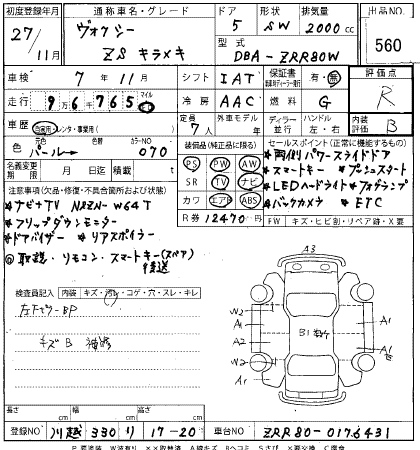 初度登録年月 通称車名・グレード ドア 形状 排気量 出品NO.
27/11月 ヴォクシー ZS キラメキ 5 SW 2000cc 560
型式 DBA-ZRR80W
車検 7年11月 シフト IAT 保証書 有・無 評価点 R
走行 9万6千765 マイル 冷房 AAC 燃料 G
車歴 自家用・レンタ・事業用( ) 定員 7人 外車モデル年 ディーラー 並行 ハンドル 左・右 内装 B
色 パール→ 色替 カラーNO 070 装備品(純正品に限る) セールスポイント(正常に機能するもの)
名義変更期限 月 日迄 積載 t PS PW AW
注意事項(欠品・修復・不具合箇所および状態) SR TV ナビ
*ナビ+TV NSZN-W64T カワ エアB ABS
*フリップダウンモニター R券 12470円
*ドアバイザー *リアスポイラー
◎取説・リモコン・スマートキー(スペア)後送
*両側パワースライドドア
*スマートキー *プッシュスタート
*LEDヘッドライト *フォグランプ
*バックカメラ *ETC
FW キズ・ヒビ割・リペア跡・X要
検査員記入 内装 キズ・汚レ・コゲ・穴・スレ・キレ
キズB
A3
W2 A1 A2 W2
B1
A1 A1
長さ cm 幅 cm 高さ cm
登録NO 川越 330 り 17-20 車台NO ZRR80-0176431